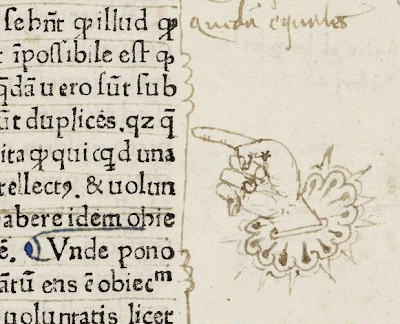 sebñt ꝙ illud ꝙ
ĩpossibile est ꝙ
q̃dã uero sũt sub
ũt duplices. qz q̃
ita ꝙ qui cq̃d una
tellectꝰ. & uolun
abere idem obie
ẽ. Vnde pono
ãtũ ens ẽ obiecᵐ
uoluntatis licet
quedã equales